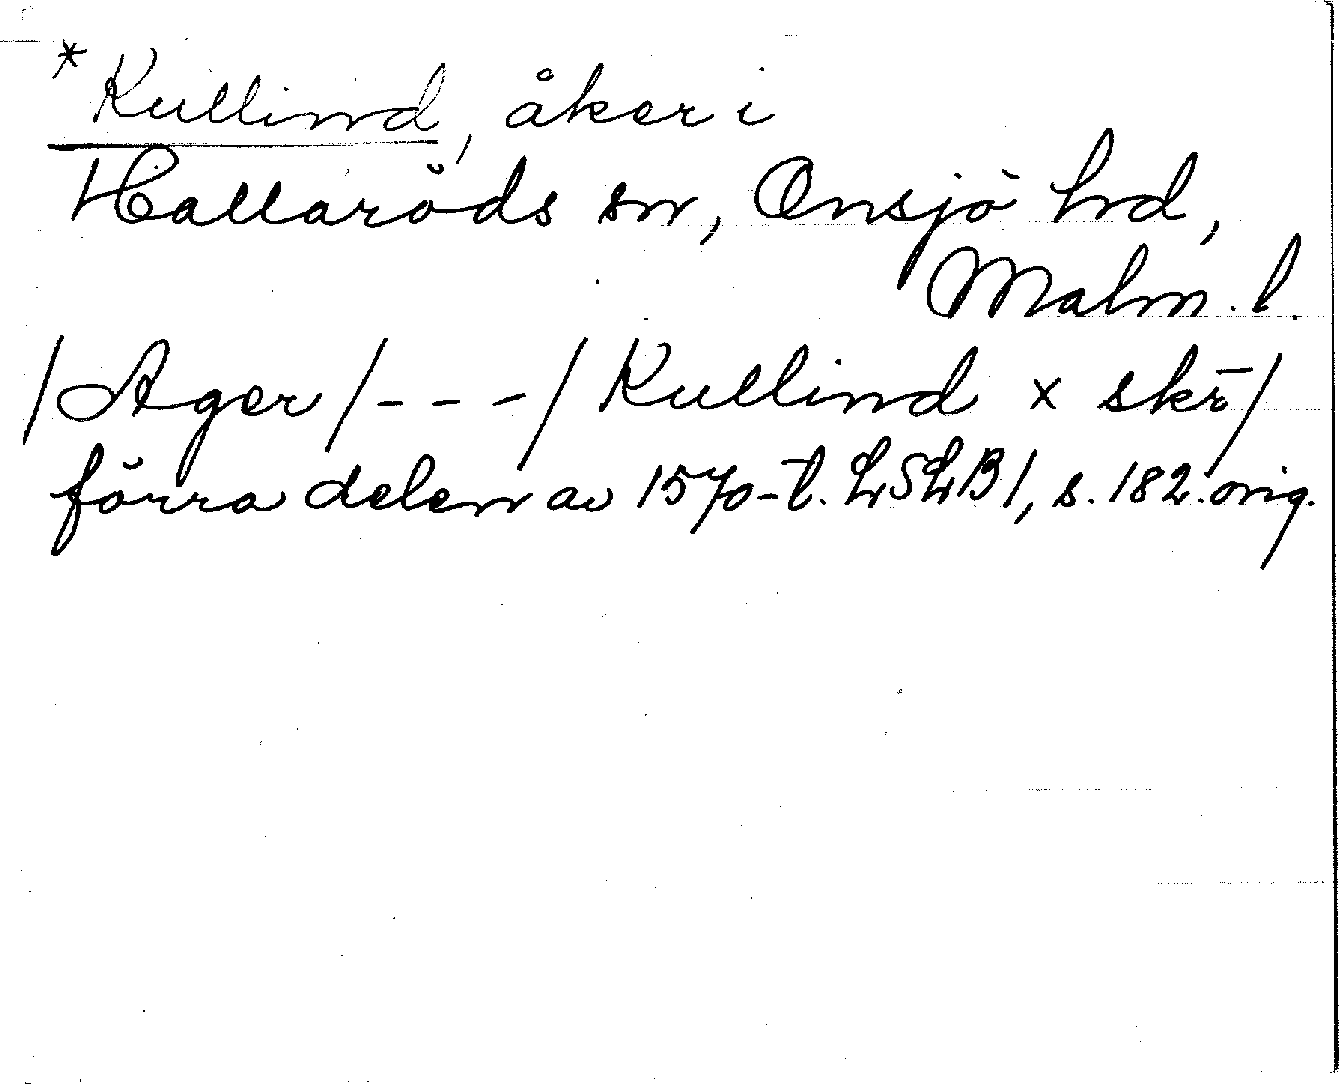 *Kullind, åker i
Hallaröds sn, Onsjö hd,
Malm. l.
/Ager/---/Kullind x skr̄/
förra delen av 1570-t. LSLB 1, s. 182. orig.